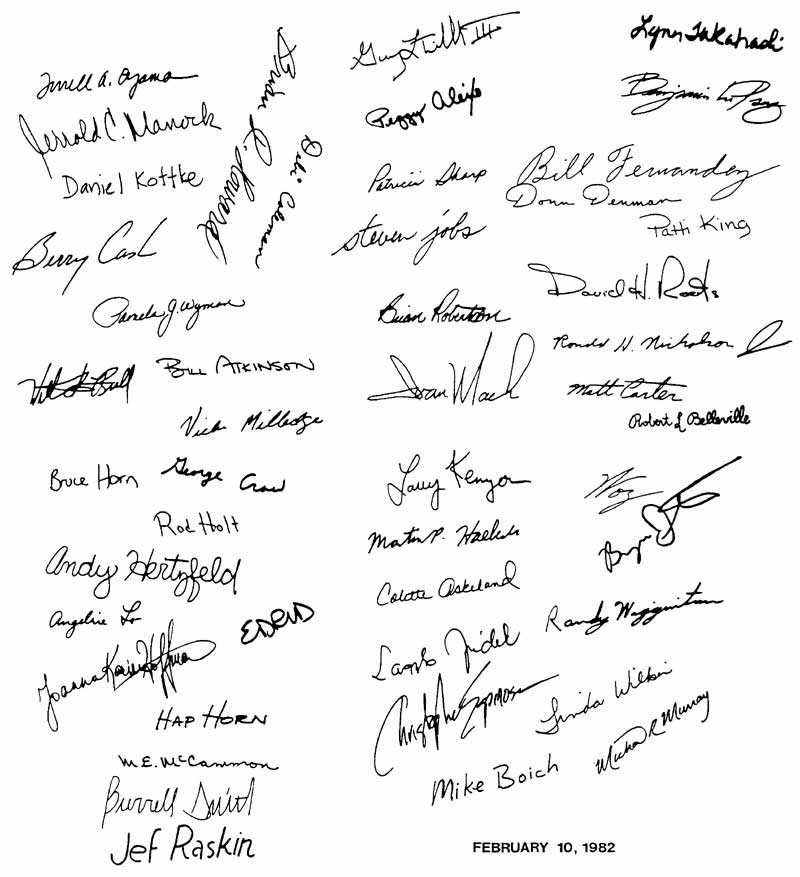 Terrell A. Oyama
Jerrold C. Manock
Daniel Kottke
Brian R. Howard
Debi Coleman
Berry Cash
Pamela J. Wyman
Bill Atkinson
Vicki Milledge
Bruce Horn
George Crow
Rod Holt
Andy Hertzfeld
Angeline Lo
Joanna Karin Hoffman
Hap Horn
M.E. McCammon
Burrell Smith
Jef Raskin
III
Peggy Alexio
Patricia Sharp
steven jobs
Brian Robertson
Ivan Mach
Larry Kenyon
Martin P. Haeberli
Colette Askeland
Laszlo Zidek
Christopher Espinosa
Mike Boich
Lynn Takahashi
Benjamin
Bill Fernandez
Donn Denman
Patti King
David H. Roots
Ronald H. Nicholson
Matt Carter
Robert L Belleville
Woz
Bryan
Randy Wigginton
Linda Wilkin
Michael R Murray
FEBRUARY 10, 1982